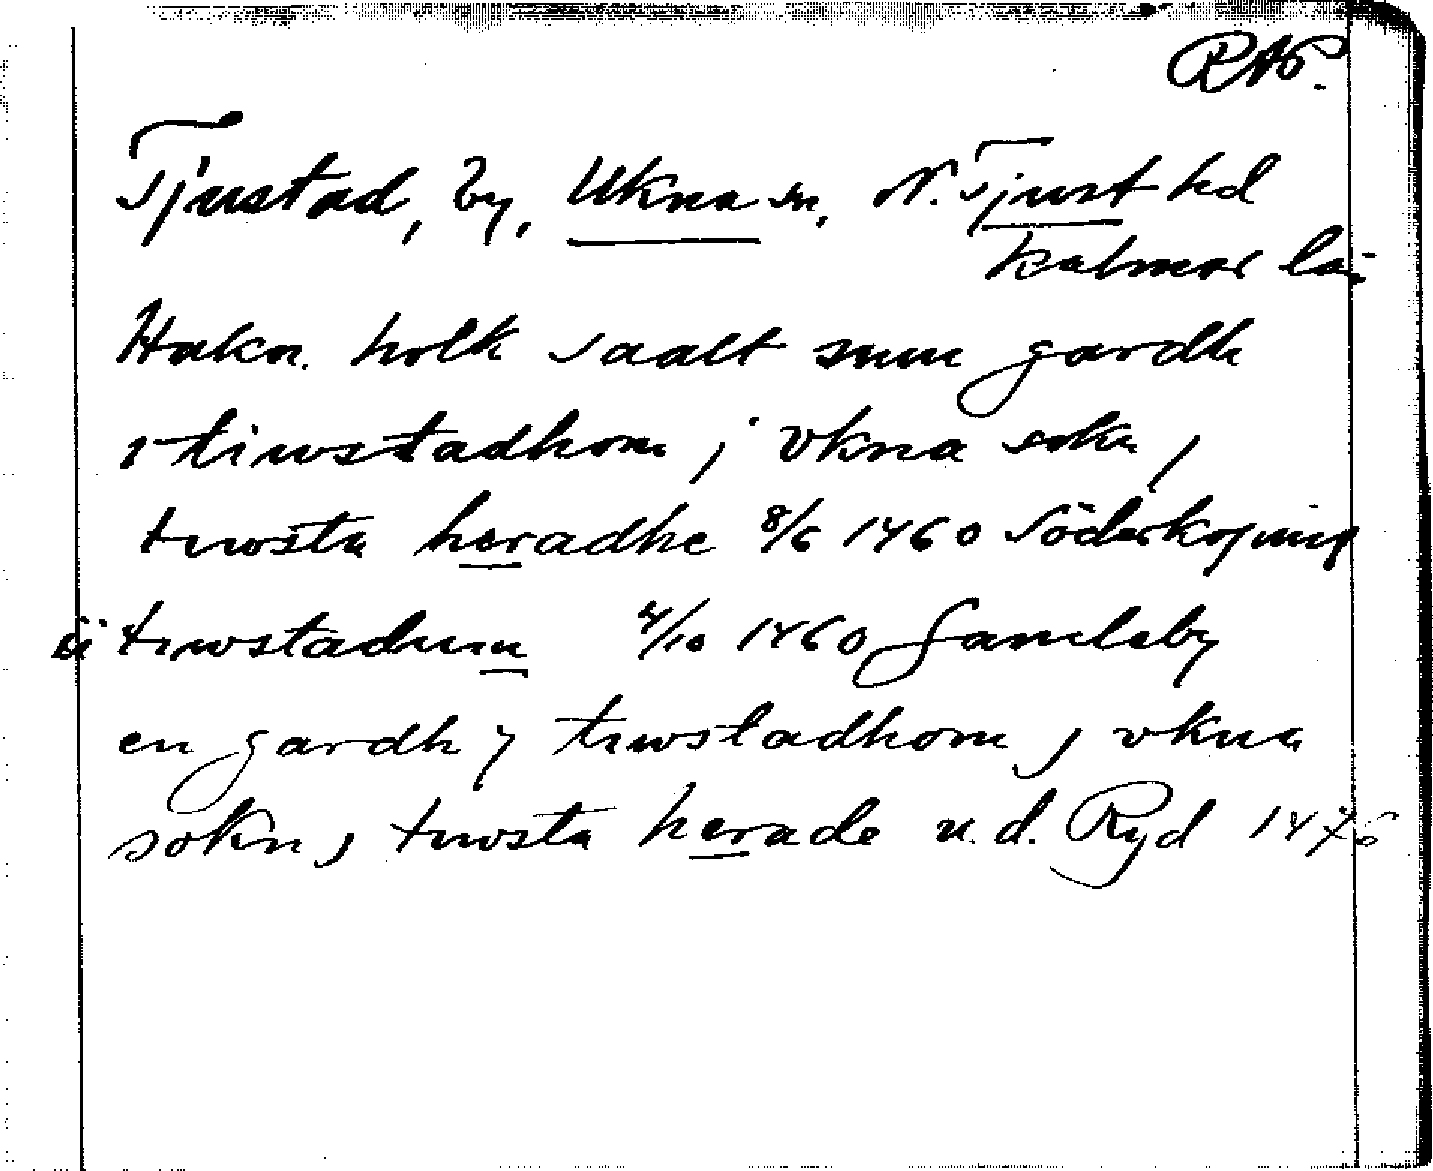 RAP.
Tjustad, by, Ukna sn, N. Tjust hd
Kalmar län
Hakn. holk saalt smm gardh
i tiwstadhom j vkna sokn j
tiwsta heradhe 8/6 1460 Söderköping
ii tiwstadum 4/10 1460 Gamleby
en gardh y tiwstadhom j vkna
sokn j tiwsta herade u.d. Ryd 1476